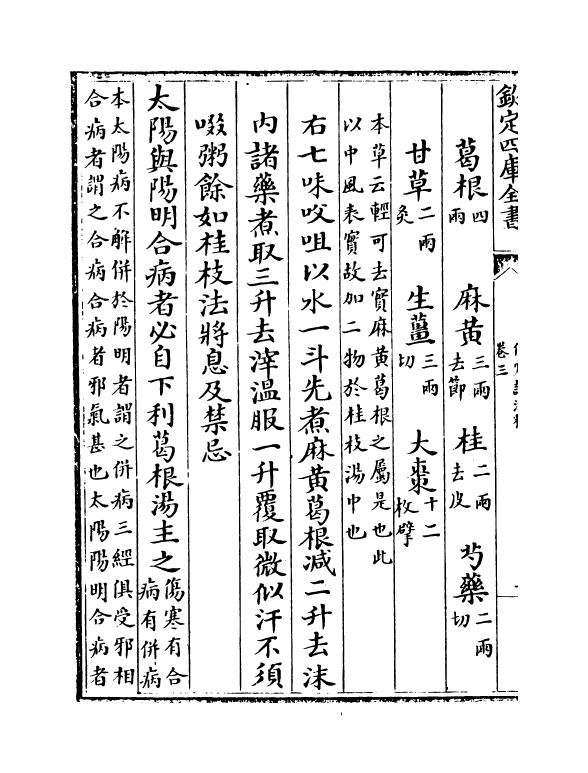 欽定四庫全書
卷三
葛根四兩 麻黄三兩去節 桂二兩去皮 芍藥二兩切
甘草二兩炙 生薑三兩切 大棗十二枚擘
本草云輕可去實麻黄葛根之屬是也此
以中風表實故加二物於桂枝湯中也
右七味㕮咀以水一斗先煮麻黄葛根減二升去沫
内諸藥煮取三升去滓温服一升覆取微似汗不須
啜粥餘如桂枝法將息及禁忌
太陽與陽明合病者必自下利葛根湯主之傷寒有合病有併病
本太陽病不解併於陽明者謂之併病三經俱受邪相
合病者謂之合病合病者邪氣甚也太陽陽明合病者